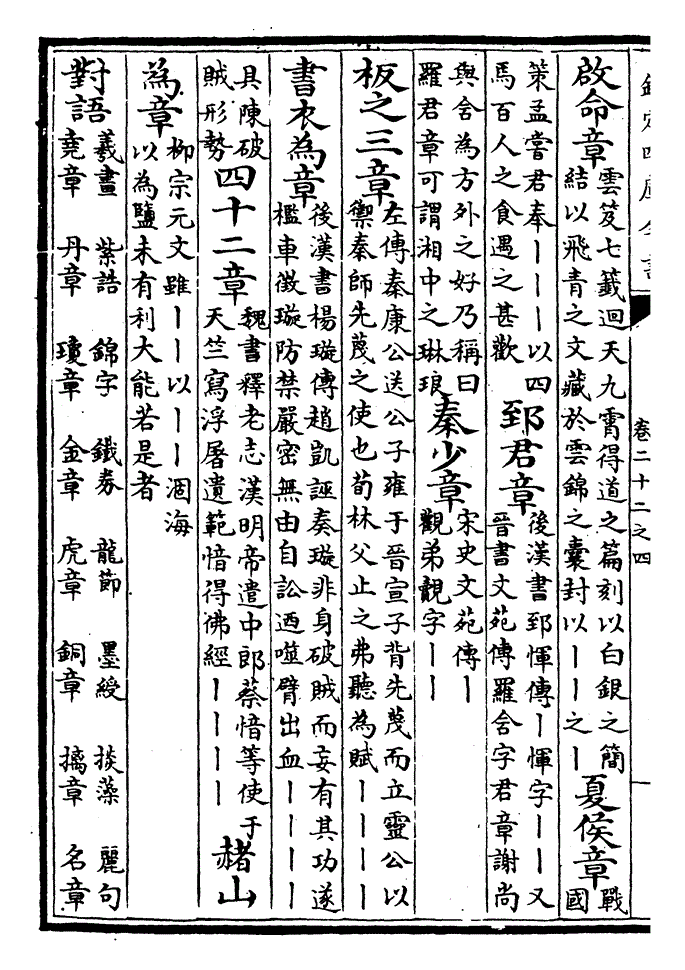 欽定四庫全書
卷二十二之四
啟命章雲笈七籤迴天九霄得道之篇刻以白銀之簡結以飛青之文藏於雲錦之囊封以丨丨之丨夏侯章戰國
策孟嘗君奉丨丨丨以四馬百人之食遇之甚歡郅君章後漢書郅惲傳丨惲字丨丨又晉書文苑傳羅含字君章謝尚
與含為方外之好乃稱曰羅君章可謂湘中之琳琅秦少章宋史文苑傳丨觀弟覿字丨丨
板之三章左傳秦康公送公子雍于晉宣子背先蔑而立靈公以禦秦師先蔑之使也荀林父止之弗聽為賦丨丨丨丨
書衣為章後漢書楊璇傳趙凱誣奏璇非身破賊而妄有其功遂檻車徵璇防禁嚴密無由自訟迺噬臂出血丨丨丨丨
具陳破賊形勢四十二章魏書釋老志漢明帝遣中郎蔡愔等使于天竺寫浮屠遺範愔得佛經丨丨丨丨赭山
為章柳宗元文雖丨丨以丨丨涸海以為鹽未有利大能若是者
對語羲畫 紫誥 錦字 鐵券 龍節 墨綬 掞藻 麗句
堯章 丹章 瓊章 金章 虎章 銅章 摛章 名章